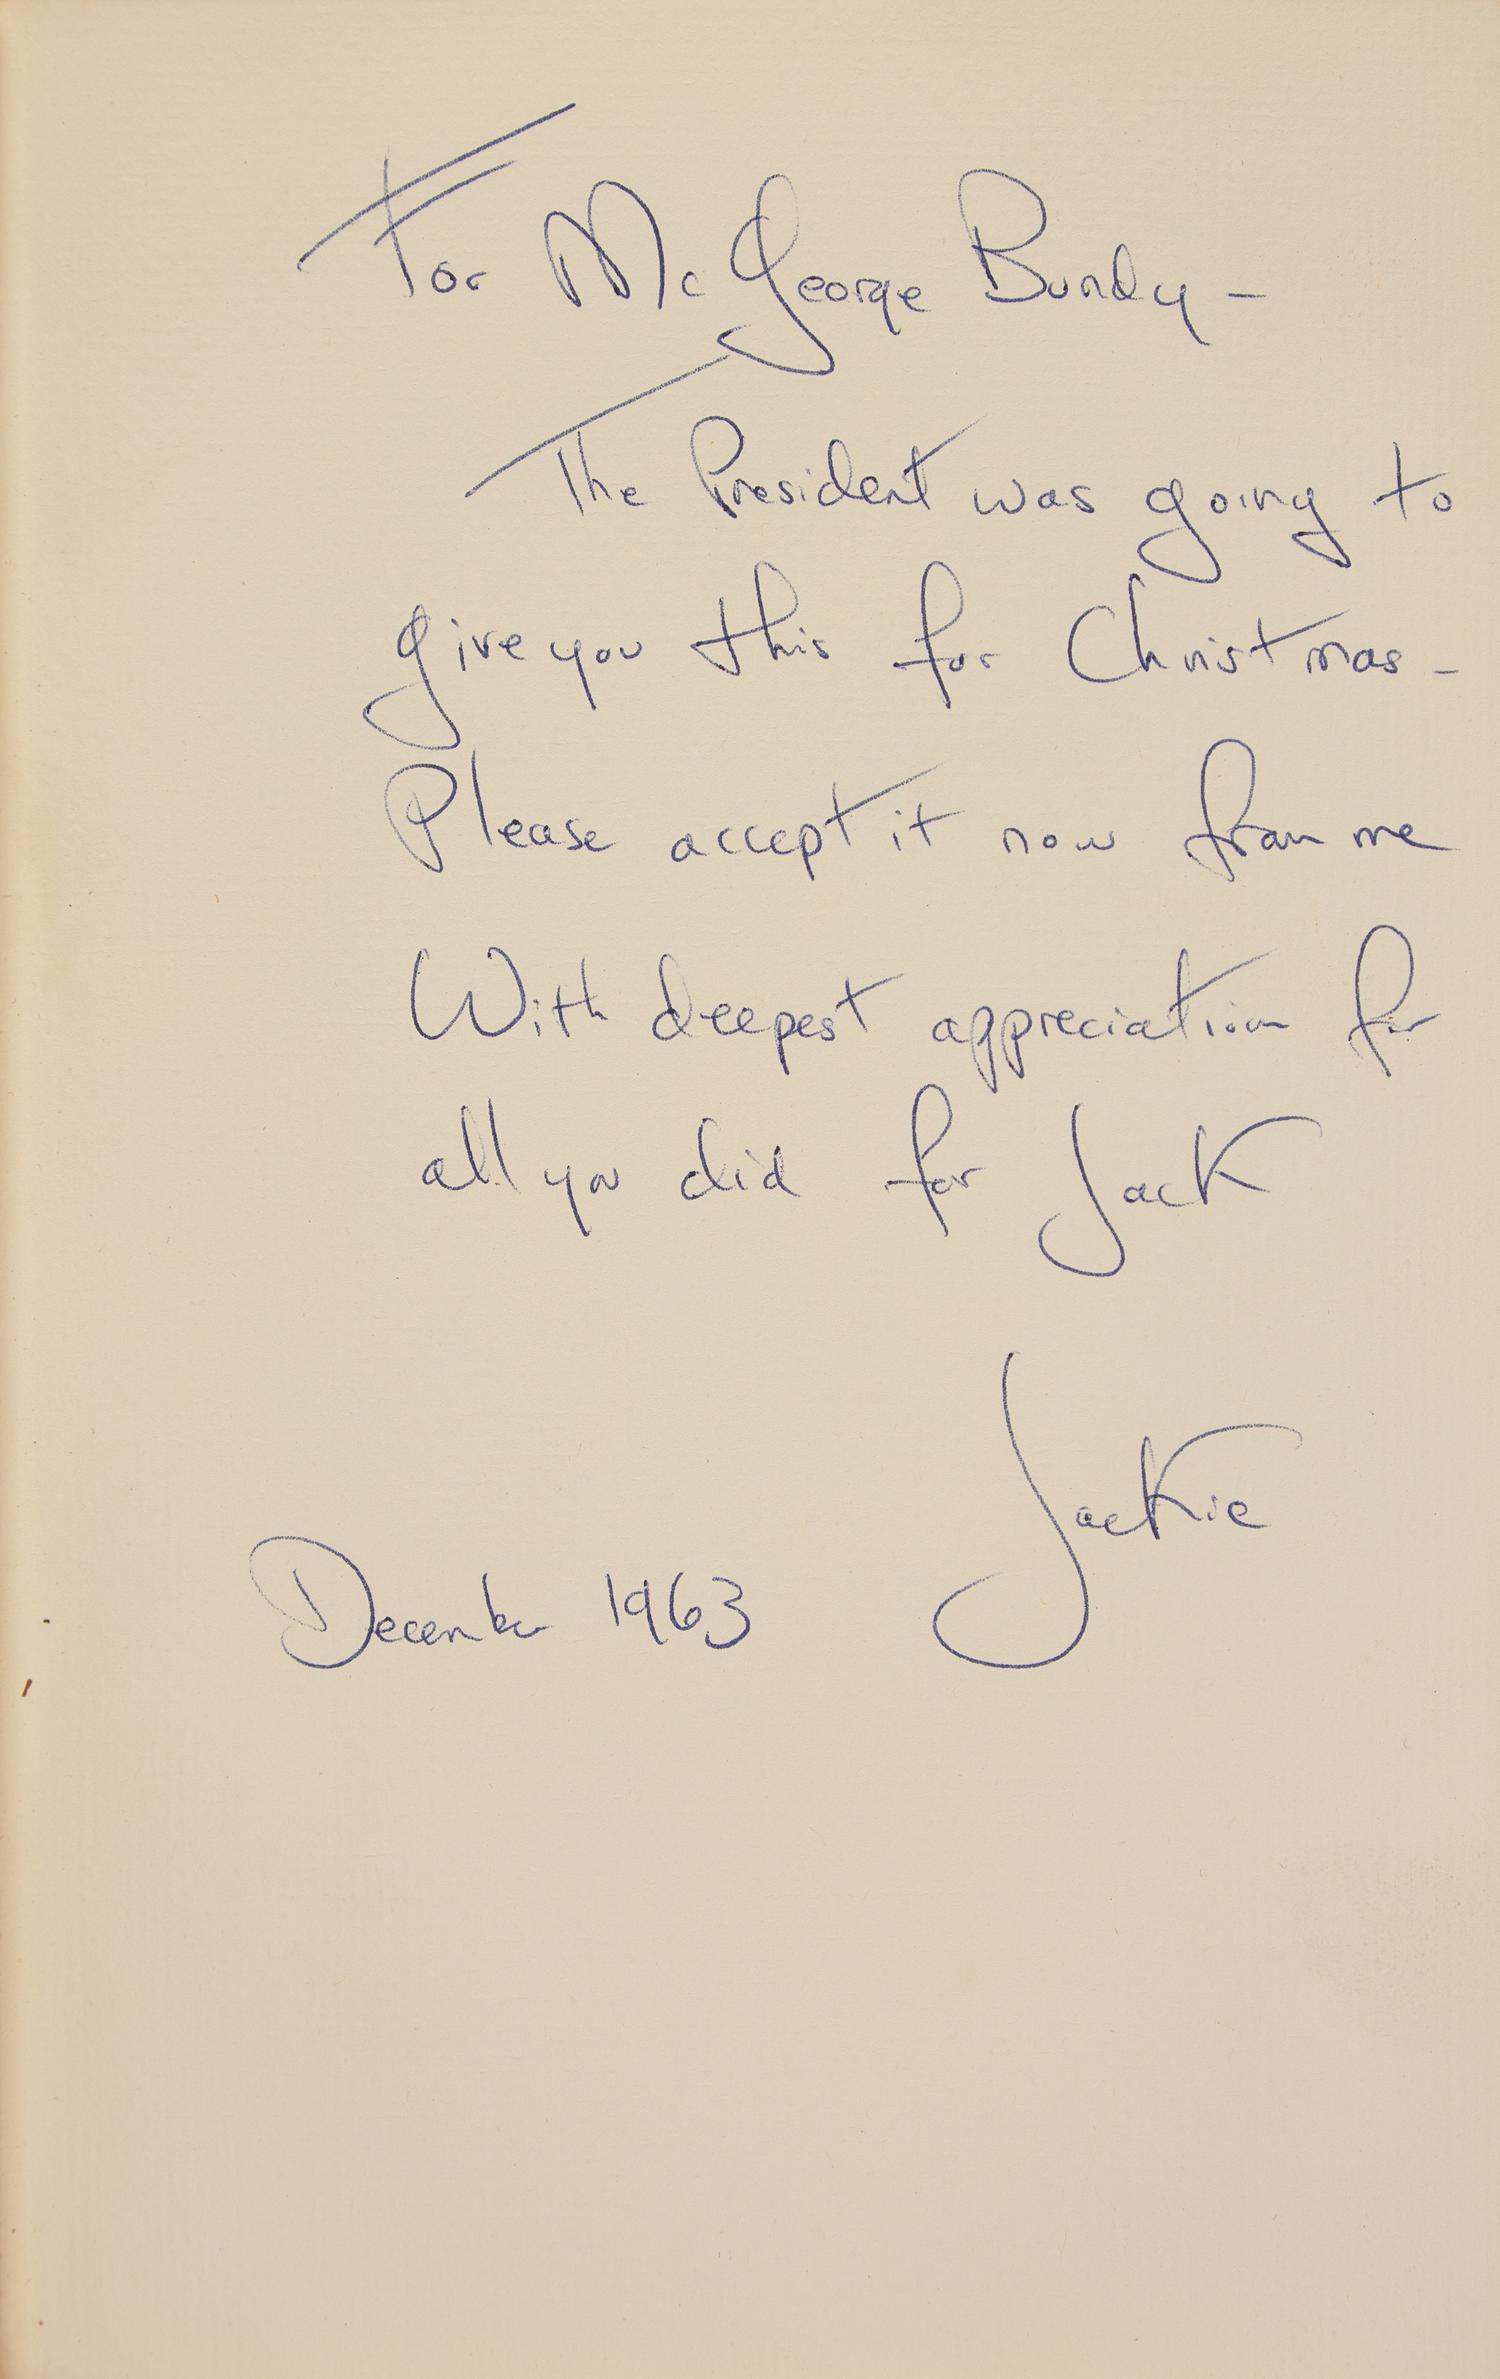 For McGeorge Bundy –
The President was going to
give you this for Christmas –
Please accept it now from me
With deepest appreciation for
all you did for Jack
Jackie
December 1963